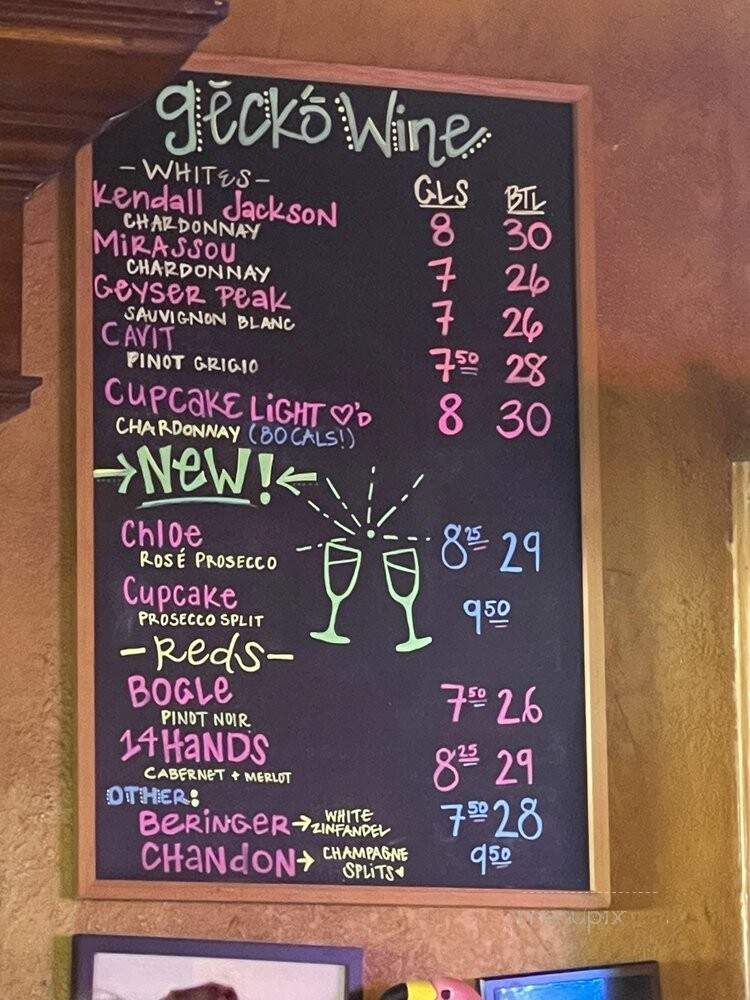 gecko Wine
-WHITES-
GLS BTL
Kendall Jackson 8 30
CHARDONNAY
MIRASSOU 7 26
CHARDONNAY
GEYSER Peak 7 26
SAUVIGNON BLANC
CAVIT 7 50 28
PINOT GRIGIO
CUPCAKE LIGHT ♡'D 8 30
CHARDONNAY (80 CALS!)
→NEW!←
Chloe 8 25 29
ROSÉ PROSECCO
Cupcake 9 50
PROSECCO SPLIT
-Reds-
BOGLE 7 50 26
PINOT NOIR
14 HANDS 8 25 29
CABERNET + MERLOT
OTHER:
BERINGER→ WHITE ZINFANDEL 7 50 28
CHANDON→ CHAMPAGNE SPLITS 9 50
menupix